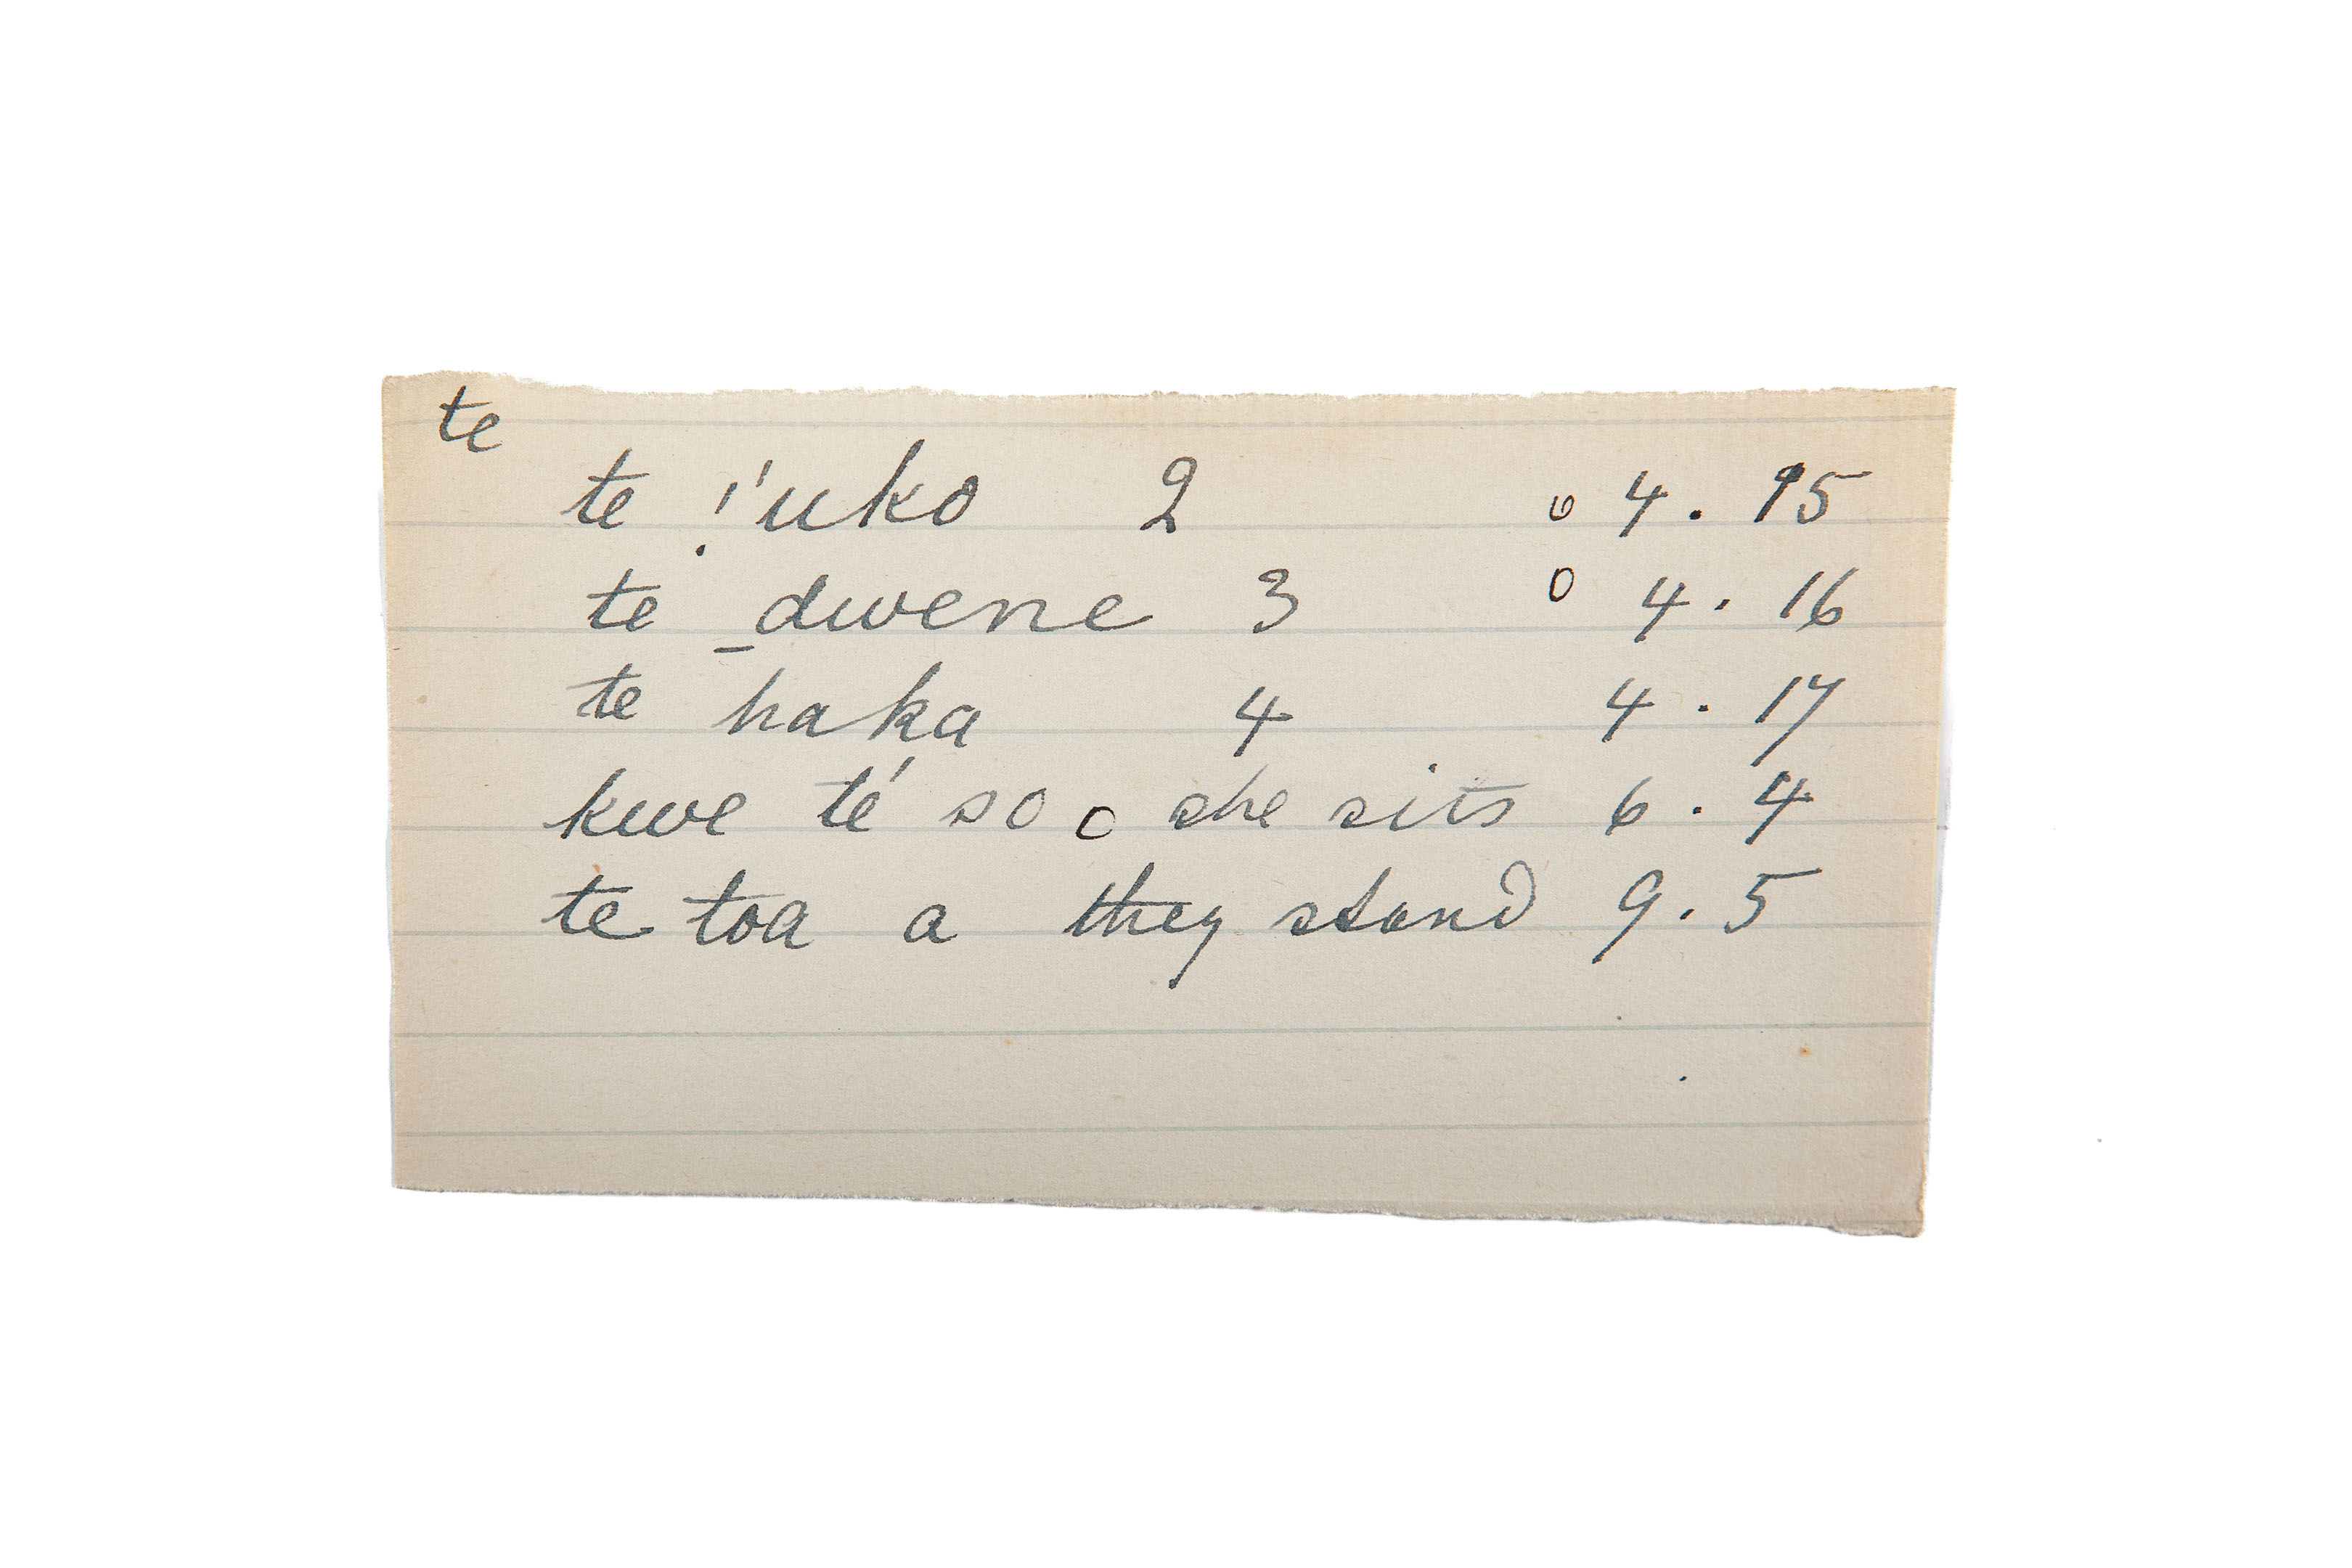 te
te !'uko 2 o 4. 15
te _dwene 3 o 4. 16
te haka 4 4. 17
kwe té so o she sits 6. 4
te toa a they stand 9. 5